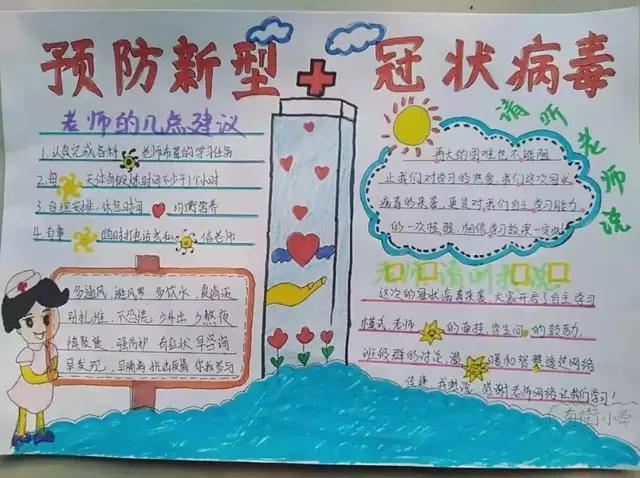 预防新型冠状病毒
老师的几点建议
1.认真完成各种老师布置的学习任务
2.每天体育锻炼时间不少于1个小时
3.合理安排,休息时间 均衡营养
4.有事 的时打电话或私 信老师
多通风 避风寒 多饮水 良消遣
别扎堆 不恐慌 少外出 少熬夜
慎聚餐 强防护 有症状 早咨询
早发现 早隔离 抗击疫情 你我参与
请听老师说
再大的困难也不能阻
止我们对学习的热爱,我们这次冠状
病毒的来袭,更是对我们自主学习能力
的一次检验,相信学习效果一定
老师请听我说
这次的冠状病毒来袭 大家开启了自主学习
模式,老师 的牵挂 学生间 的鼓励
班级群的讨论 温 暖和智慧连接网络
传递 我想说 感谢老师网络让我们学习!
南街小学